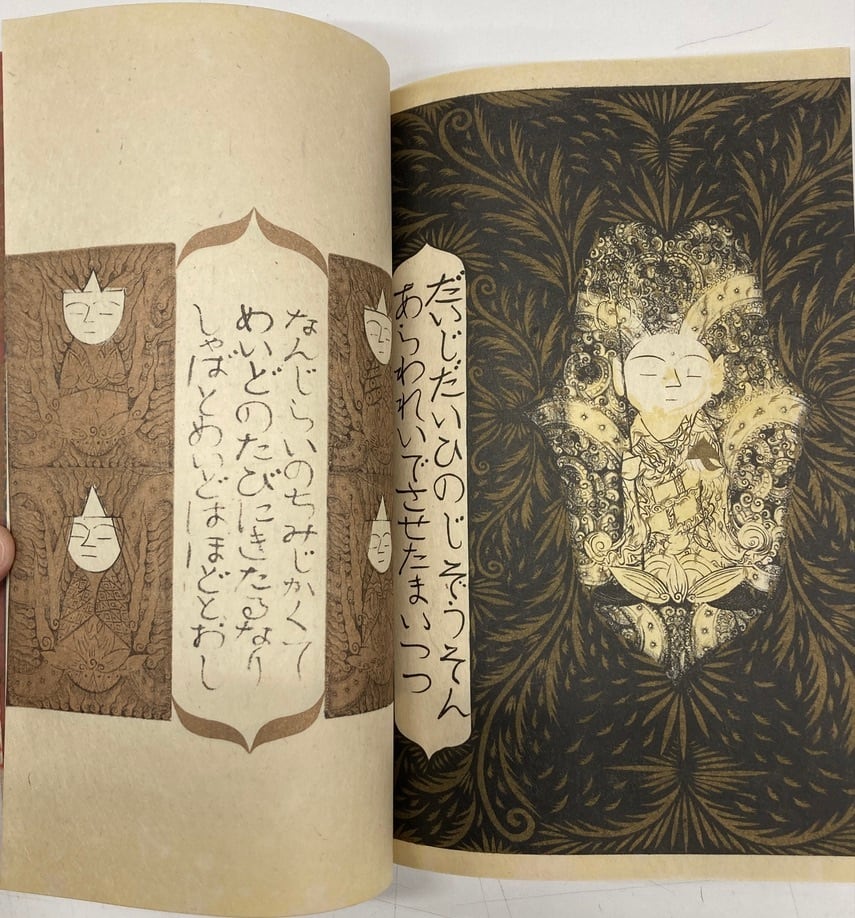 だいじだいひのじぞうそん
あらわれいでさせたまいつつ
なんじらいのちみじかくて
めいどのたびにきたるなり
しゃばとめいどはほどとおし